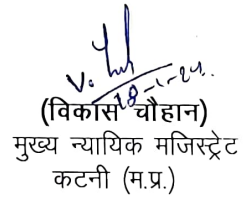 18-1-24.
(विकास चौहान)
मुख्य न्यायिक मजिस्ट्रेट
कटनी (म.प्र.)